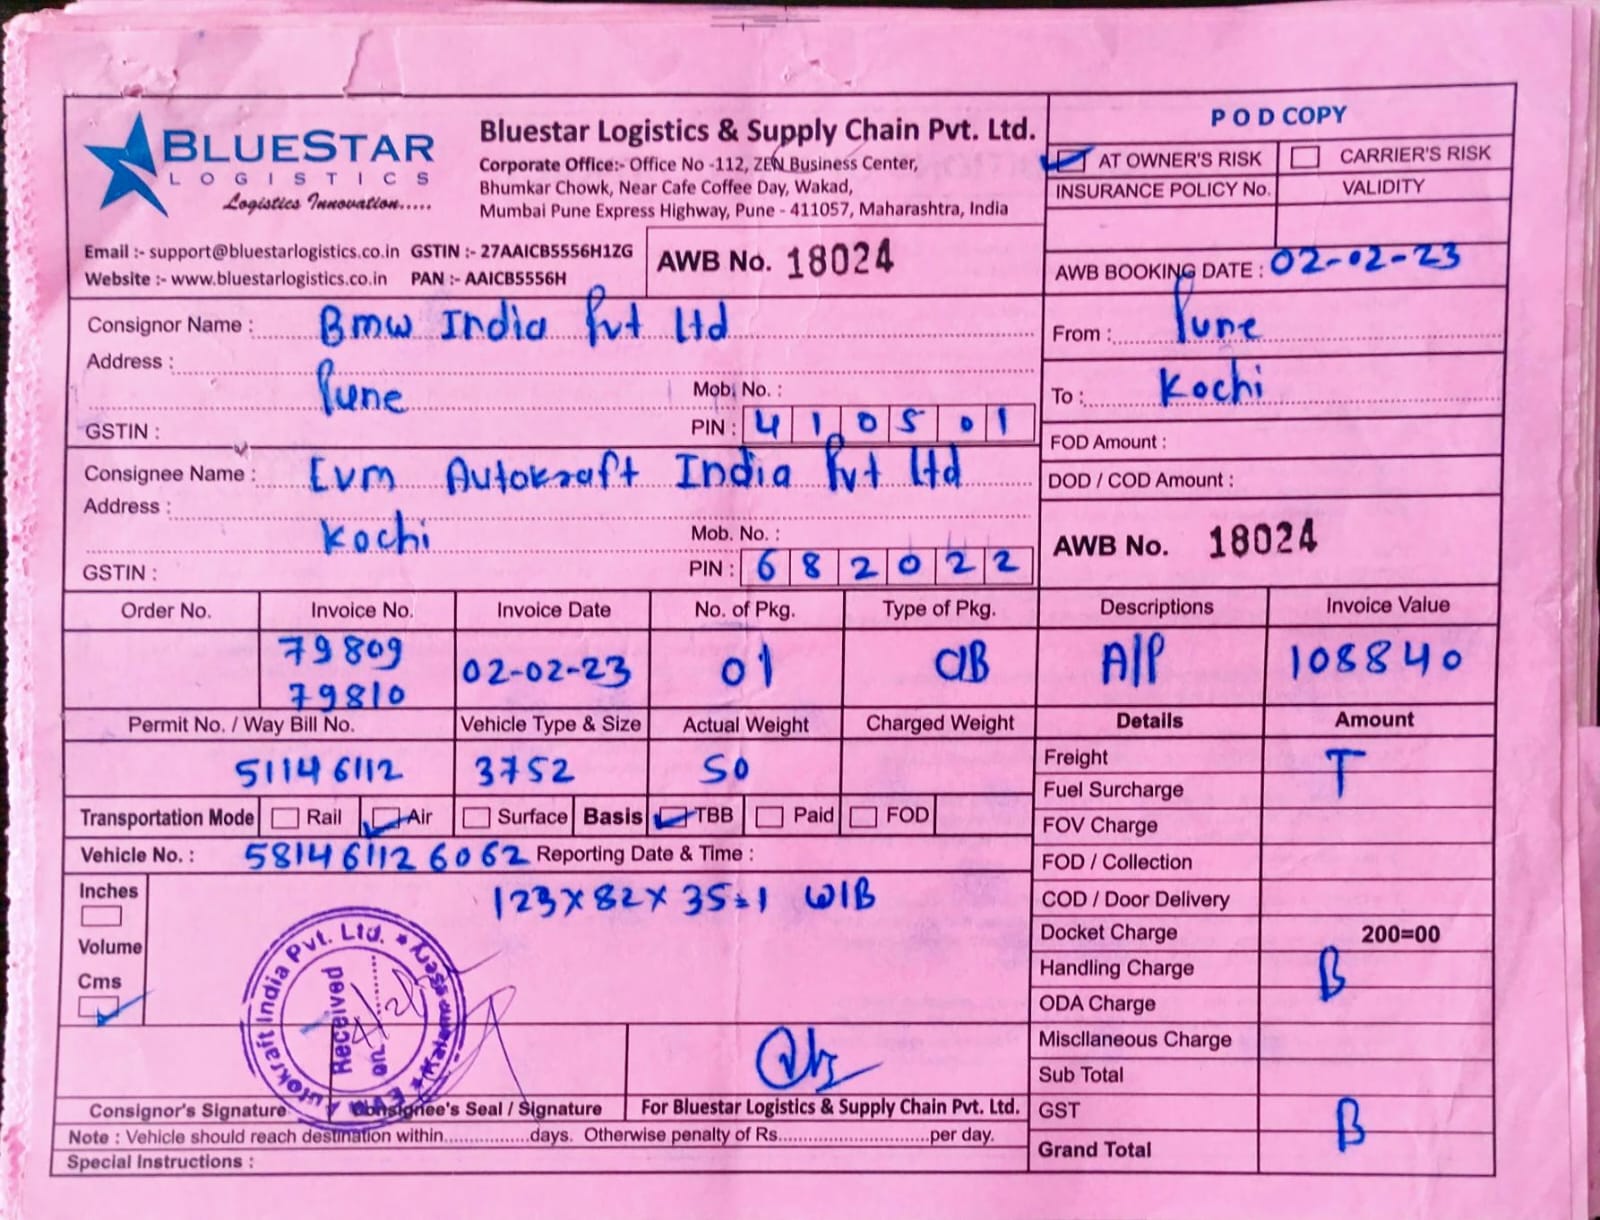 BLUESTAR
LOGISTICS
Logistics Innovation.....
Bluestar Logistics & Supply Chain Pvt. Ltd.
Corporate Office:- Office No -112, ZEN Business Center,
Bhumkar Chowk, Near Cafe Coffee Day, Wakad,
Mumbai Pune Express Highway, Pune - 411057, Maharashtra, India
Email :- support@bluestarlogistics.co.in GSTIN :- 27AAICB5556H1ZG
Website :- www.bluestarlogistics.co.in PAN :- AAICB5556H
AWB No. 18024
POD COPY
AT OWNER'S RISK CARRIER'S RISK
INSURANCE POLICY No. VALIDITY
AWB BOOKING DATE : 02-02-23
Consignor Name : Bmw India Pvt Ltd
Address :
Pune Mob. No. :
GSTIN : PIN : 410501
From : Pune
To : Kochi
Consignee Name : Evm Autokraft India Pvt Ltd
Address :
Kochi Mob. No. :
GSTIN : PIN : 682022
FOD Amount :
DOD / COD Amount :
AWB No. 18024
Order No. Invoice No. Invoice Date No. of Pkg. Type of Pkg. Descriptions Invoice Value
79809
79810 02-02-23 01 C/B A/P 108840
Permit No. / Way Bill No. Vehicle Type & Size Actual Weight Charged Weight Details Amount
51146112 3752 50
Freight T
Fuel Surcharge
Transportation Mode Rail Air Surface Basis TBB Paid FOD
FOV Charge
Vehicle No. : 581461126062 Reporting Date & Time :
FOD / Collection
Inches
123x82x35=1 W/B
COD / Door Delivery
Volume
Docket Charge 200=00
Cms
Handling Charge B
ODA Charge
EVM Autokraft India Pvt. Ltd. * Kalamassery *
Received
on
Miscllaneous Charge
Sub Total
Consignor's Signature Consignee's Seal / Signature For Bluestar Logistics & Supply Chain Pvt. Ltd.
GST B
Note : Vehicle should reach destination within.................days. Otherwise penalty of Rs..............................per day.
Grand Total
Special Instructions :